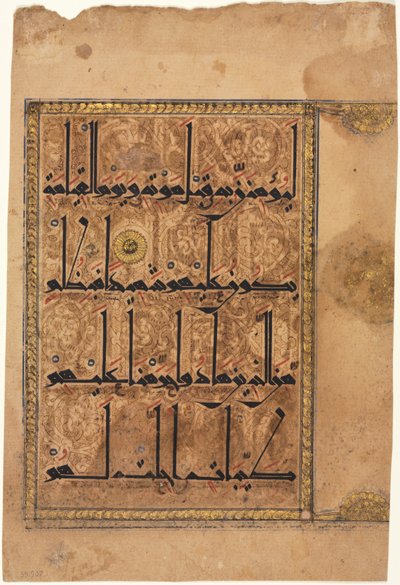 ليؤمنن به قبل موته ويوم القيمة
يكون عليهم شهيدا فبظلم
من الذين هادوا حرمنا عليهم
طيبات احلت لهم
39.507